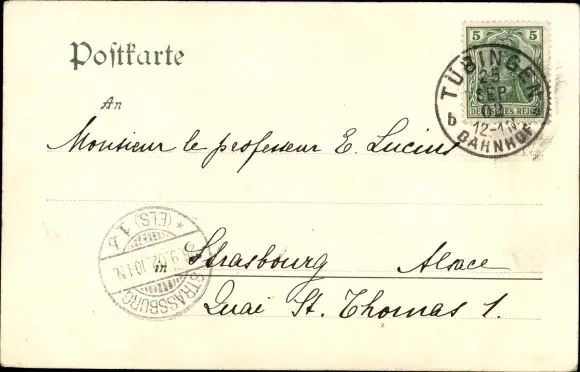 Postkarte
5 5
DEUTSCHES REICH
TÜBINGEN
25
SEP
02
12-1 N
b
BAHNHOF
An
Monsieur le professeur E. Lucius
* (ELS.) 1. b
9.02.10-11N
STRASSBURG
in Strasbourg Alsace
Quai St. Thomas 1.